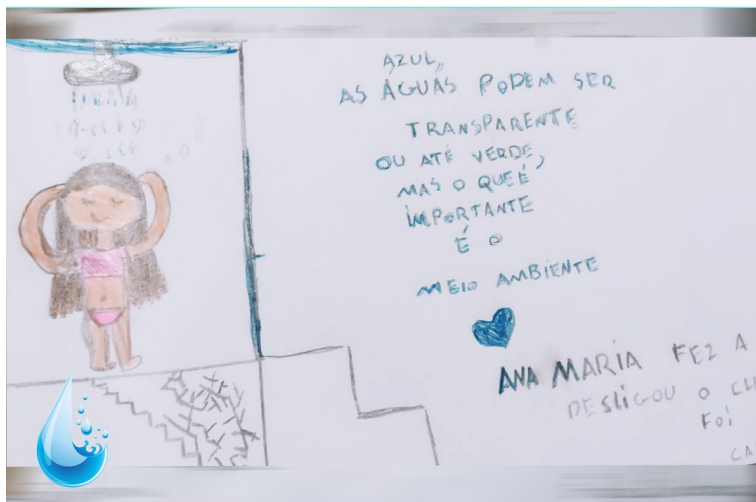 AZUL,
AS ÁGUAS PODEM SER
TRANSPARENTE
OU ATÉ VERDE,
MAS O QUE É
IMPORTANTE
É O
MEIO AMBIENTE
ANA MARIA FEZ A
DESLIGOU O
FOI